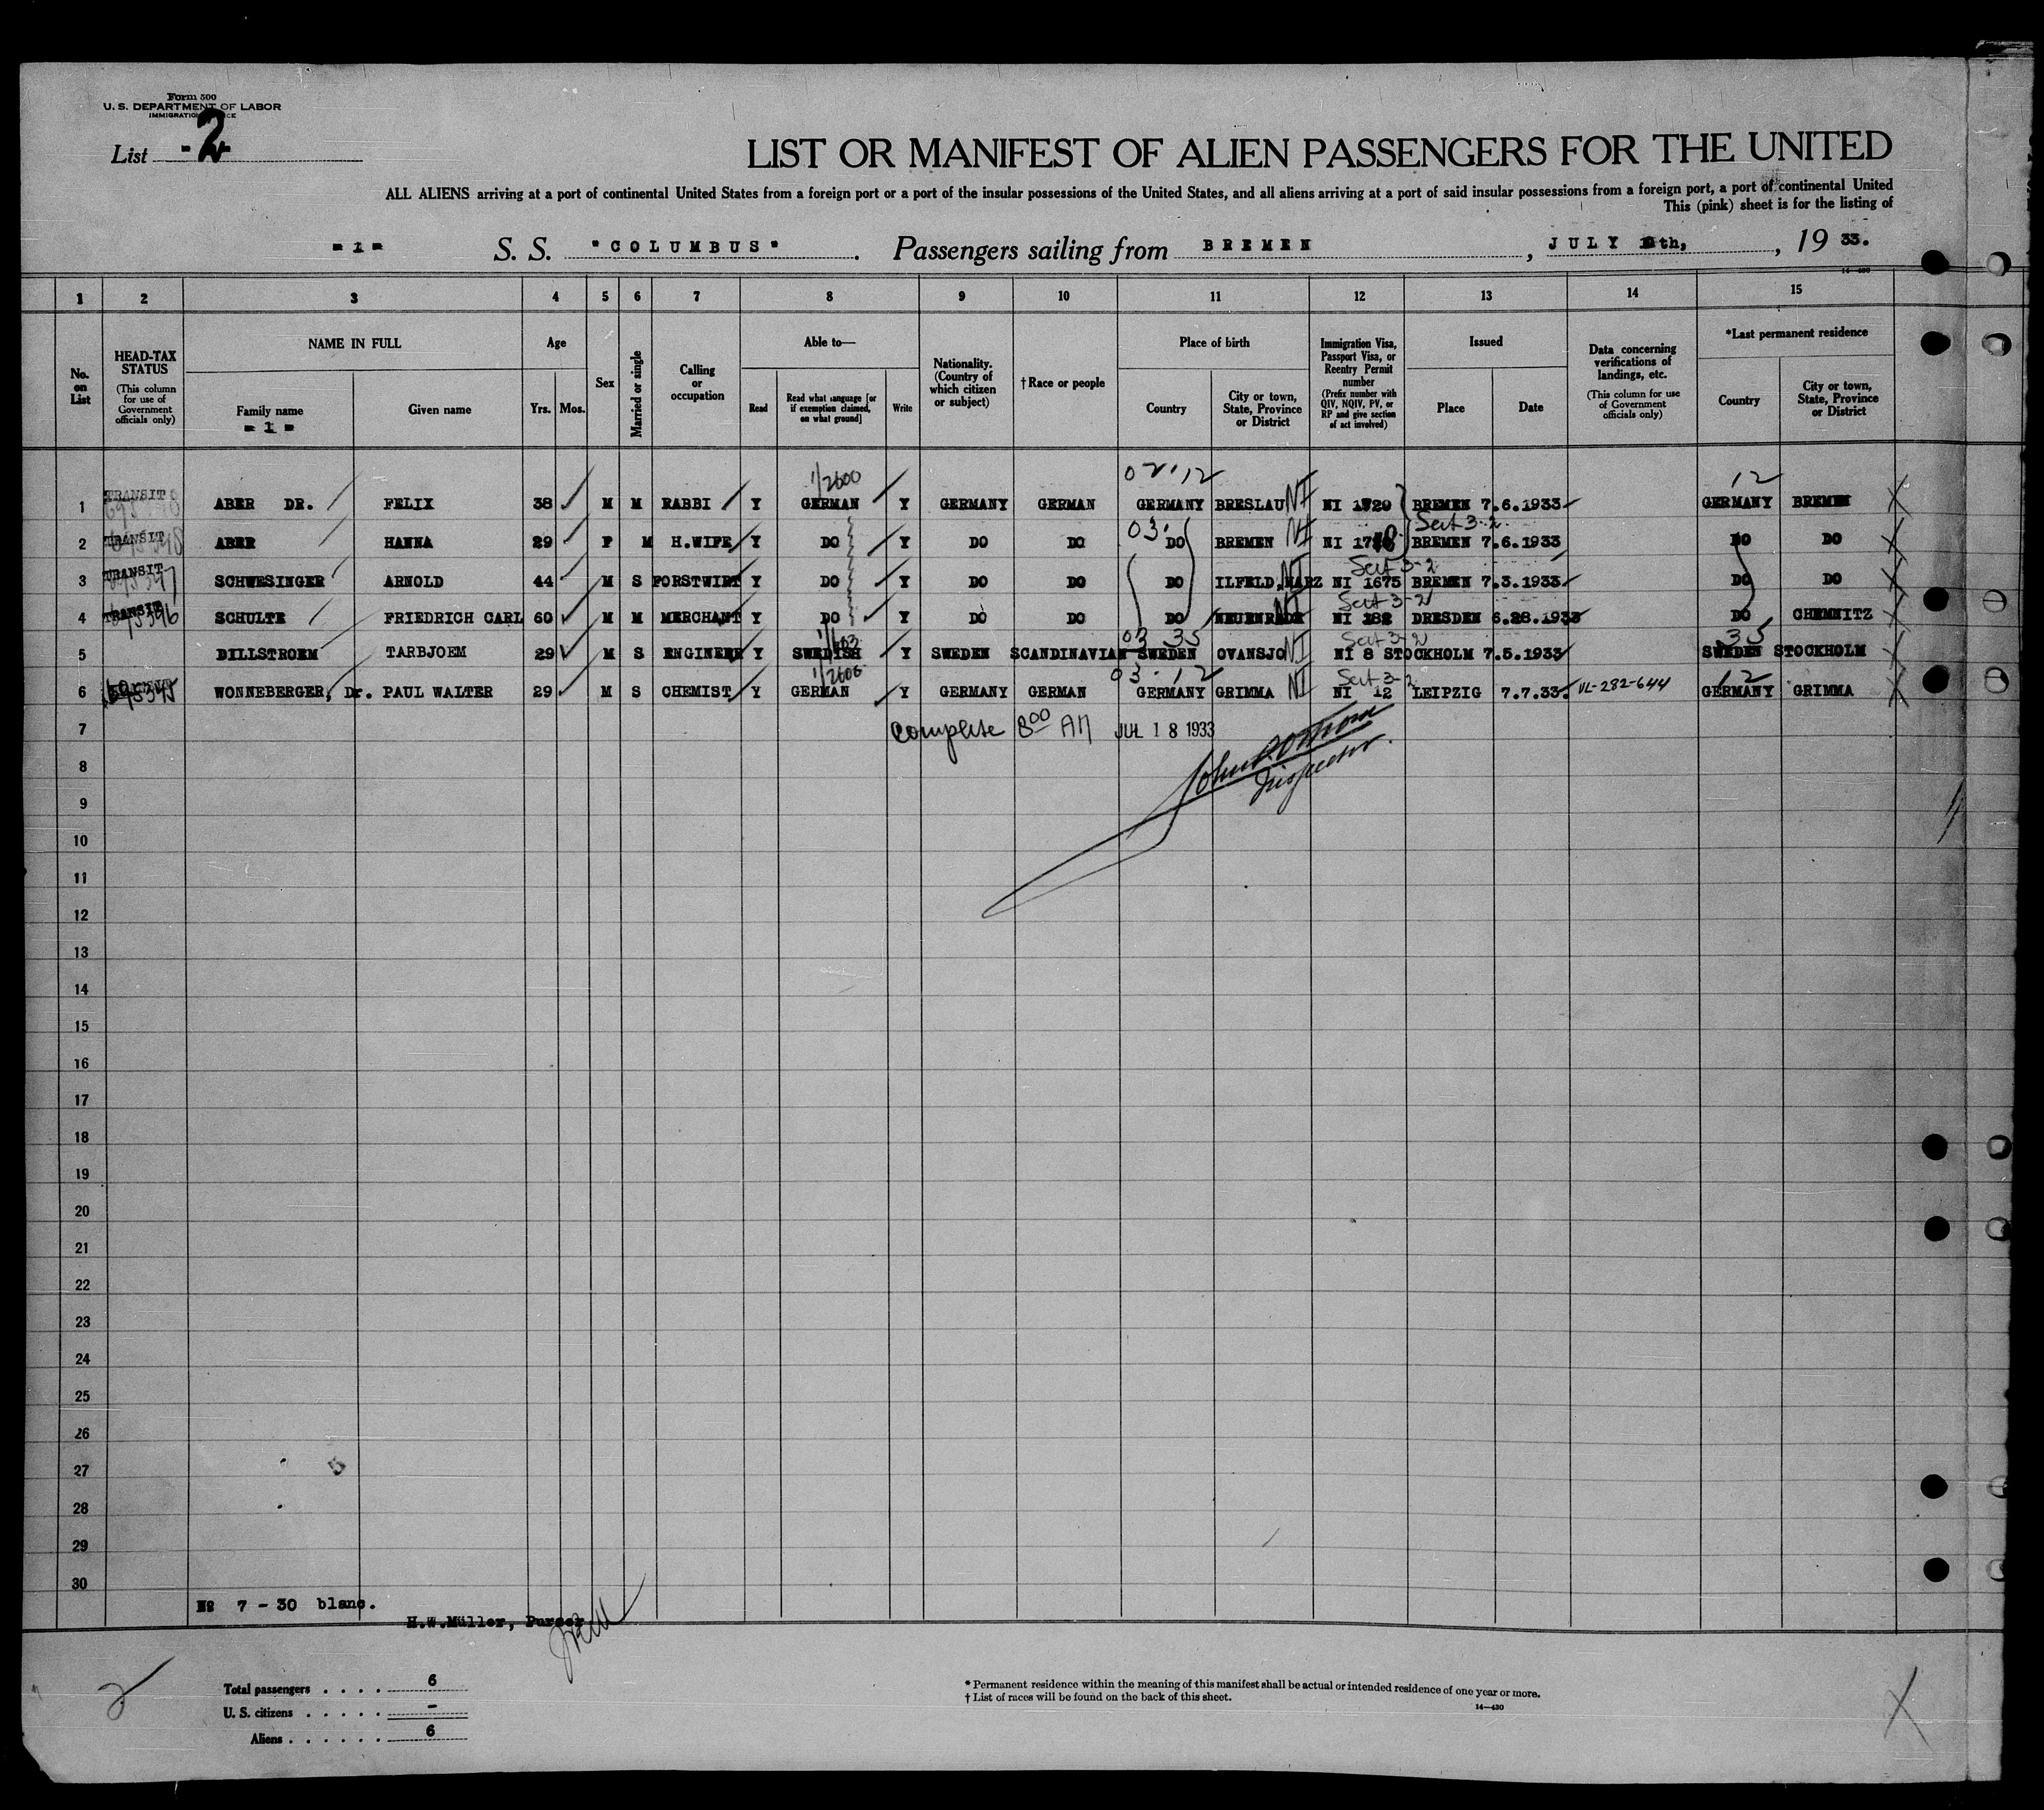 Form 500
U. S. DEPARTMENT OF LABOR
List - 2
LIST OR MANIFEST OF ALIEN PASSENGERS FOR THE UNITED
ALL ALIENS arriving at a port of continental United States from a foreign port or a port of the insular possessions of the United States, and all aliens arriving at a port of said insular possessions from a foreign port, a port of continental United
This (pink) sheet is for the listing of
- 1 - S. S. "COLUMBUS". Passengers sailing from BREMEN, JULY th, , 19 33.
14-430
1 2 3 4 5 6 7 8 9 10 11 12 13 14 15
No. on List
HEAD-TAX STATUS (This column for use of Government officials only)
NAME IN FULL
Family name - 1 -
Given name
Age
Yrs. Mos.
Sex
Married or single
Calling or occupation
Able to—
Read
Read what language [or if exemption claimed, on what ground]
Write
Nationality. (Country of which citizen or subject)
†Race or people
Place of birth
Country
City or town, State, Province or District
Immigration Visa, Passport Visa, or Reentry Permit number (Prefix number with QIV, NQIV, PV, or RP and give section of act involved)
Issued
Place
Date
Data concerning verifications of landings, etc. (This column for use of Government officials only)
*Last permanent residence
Country
City or town, State, Province or District
1/2600 02 12 12
1 TRANSIT ABER DR. FELIX 38 M M RABBI Y GERMAN Y GERMANY GERMAN GERMANY BRESLAU NI NI BREMEN 7.6.1933 GERMANY BREMEN
03. Sect 3-2
2 TRANSIT ABER HANNA 29 F M H.WIFE Y DO Y DO DO DO BREMEN NI NI BREMEN 7.6.1933 DO DO
Sect 3-2
3 TRANSIT SCHWESINGER ARNOLD 44 M S FORSTWIRT Y DO Y DO DO DO ILFELD,HARZ NI NI 1675 BREMEN 7.3.1933 DO DO
Sect 3-2
4 TRANSIT SCHULTE FRIEDRICH CARL 60 M M MERCHANT Y DO Y DO DO DO NEUENRADE NI NI 282 DRESDEN 6.28.1933 DO CHEMNITZ
1/603 03 35 Sect 3-2 35
5 BILLSTROEM TARBJOEM 29 M S ENGINEER Y SWEDISH Y SWEDEN SCANDINAVIAN SWEDEN OVANSJO NI NI 8 STOCKHOLM 7.5.1933 SWEDEN STOCKHOLM
1/2600 03 12 Sect 3-2 12
6 WONNEBERGER, Dr. PAUL WALTER 29 M S CHEMIST Y GERMAN Y GERMANY GERMAN GERMANY GRIMMA NI NI 12 LEIPZIG 7.7.33. VL-282-644 GERMANY GRIMMA
7 Complete 8 00 AM JUL 18 1933
8
Inspector.
9
10
11
12
13
14
15
16
17
18
19
20
21
22
23
24
25
26
27
28
29
30
No 7 - 30 blanc.
H.W.Müller, Purser
2
Total passengers . . . . 6
U. S. citizens . . . . . -
Aliens . . . . . . 6
* Permanent residence within the meaning of this manifest shall be actual or intended residence of one year or more.
† List of races will be found on the back of this sheet.
14—430